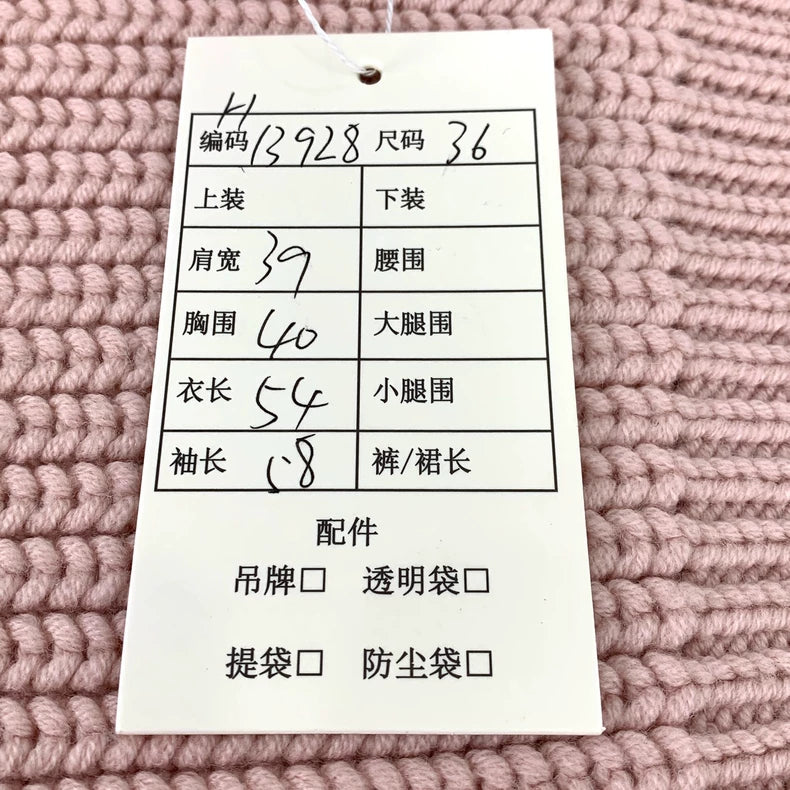 H
编码 13928 尺码 36
上装 下装
肩宽 39 腰围
胸围 40 大腿围
衣长 54 小腿围
袖长 58 裤/裙长
配件
吊牌□ 透明袋□
提袋□ 防尘袋□